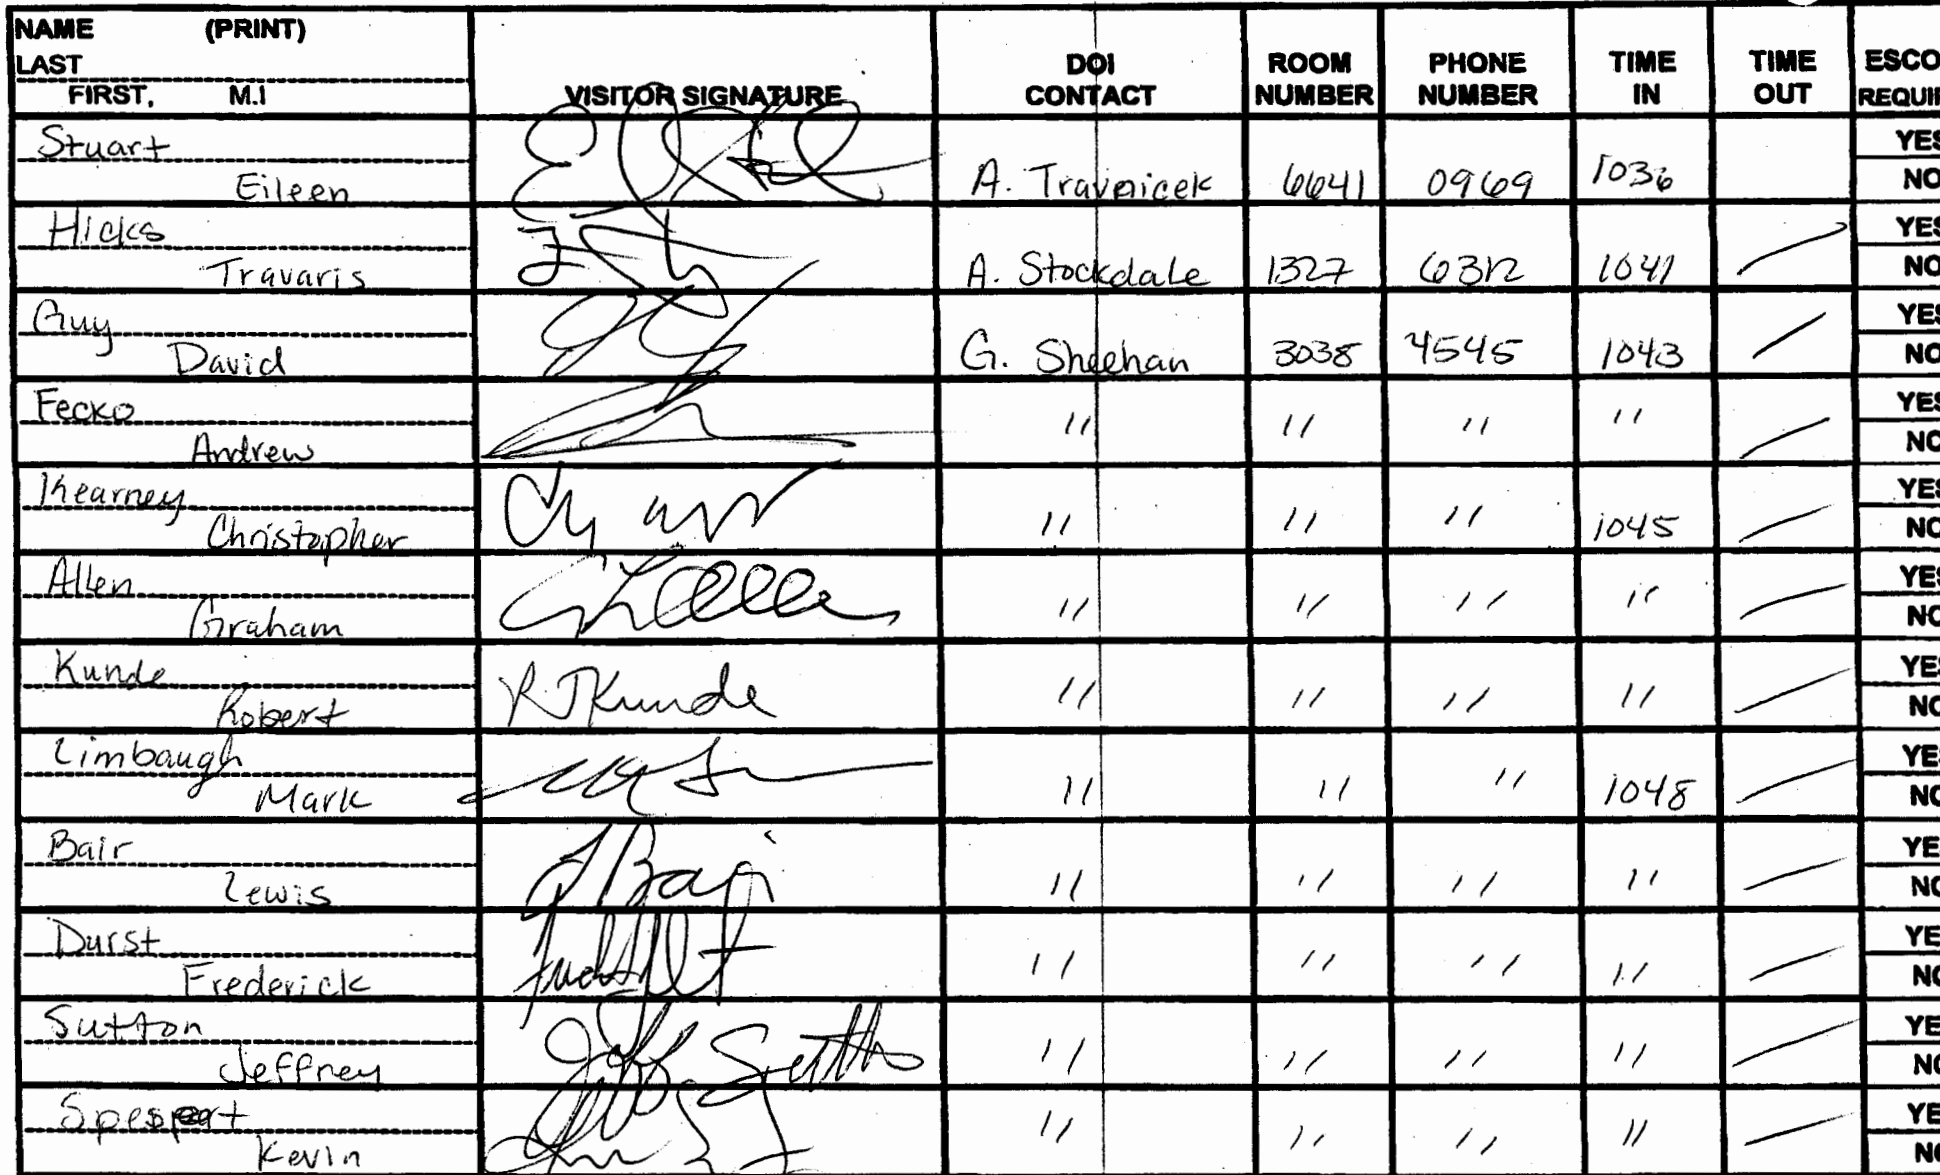 NAME (PRINT)
LAST
FIRST, M.I
VISITOR SIGNATURE
DOI CONTACT
ROOM NUMBER
PHONE NUMBER
TIME IN
TIME OUT
ESCO
REQUIR
Stuart
Eileen A. Travnicek 6641 0969 1036
YES
NO
Hicks
Travaris A. Stockdale 1327 6312 1041
YES
NO
Guy
David G. Sheehan 3038 4545 1043
YES
NO
Fecko " " " "
Andrew
YES
NO
Kearney
Christopher " " " 1045
YES
NO
Allen
Graham " " " "
YES
NO
Kunde
Robert RJKunde " " " "
YES
NO
Limbaugh
Mark " " " 1048
YES
NO
Bair
Lewis " " " "
YE
NO
Durst
Frederick " " " "
YE
NO
Sutton
Jeffrey Jeff Sutton " " " "
YE
NO
" " " "
Kevin
YE
NO